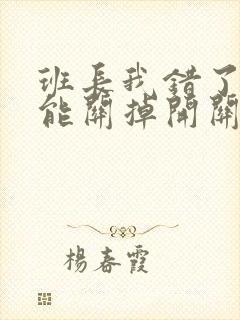 班長我錯了
能關掉開關
楊春霞